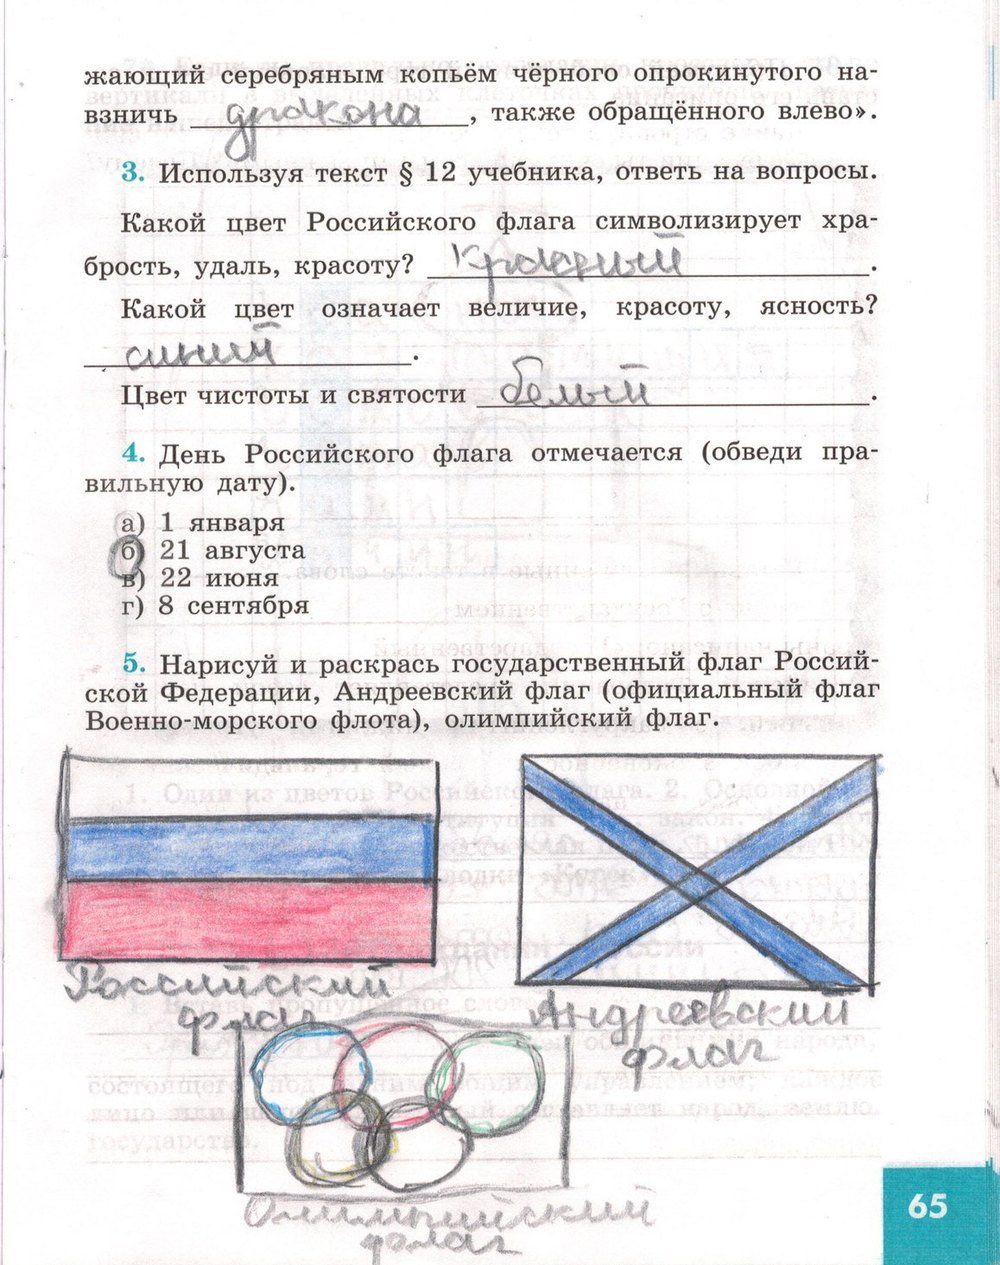 жающий серебряным копьём чёрного опрокинутого на-
взничь дракона, также обращённого влево».
3. Используя текст § 12 учебника, ответь на вопросы.
Какой цвет Российского флага символизирует хра-
брость, удаль, красоту? Красный.
Какой цвет означает величие, красоту, ясность?
синий.
Цвет чистоты и святости белый.
4. День Российского флага отмечается (обведи пра-
вильную дату).
а) 1 января
б) 21 августа
в) 22 июня
г) 8 сентября
5. Нарисуй и раскрась государственный флаг Россий-
ской Федерации, Андреевский флаг (официальный флаг
Военно-морского флота), олимпийский флаг.
Российский
флаг
Андреевский
флаг
Олимпийский
флаг
65